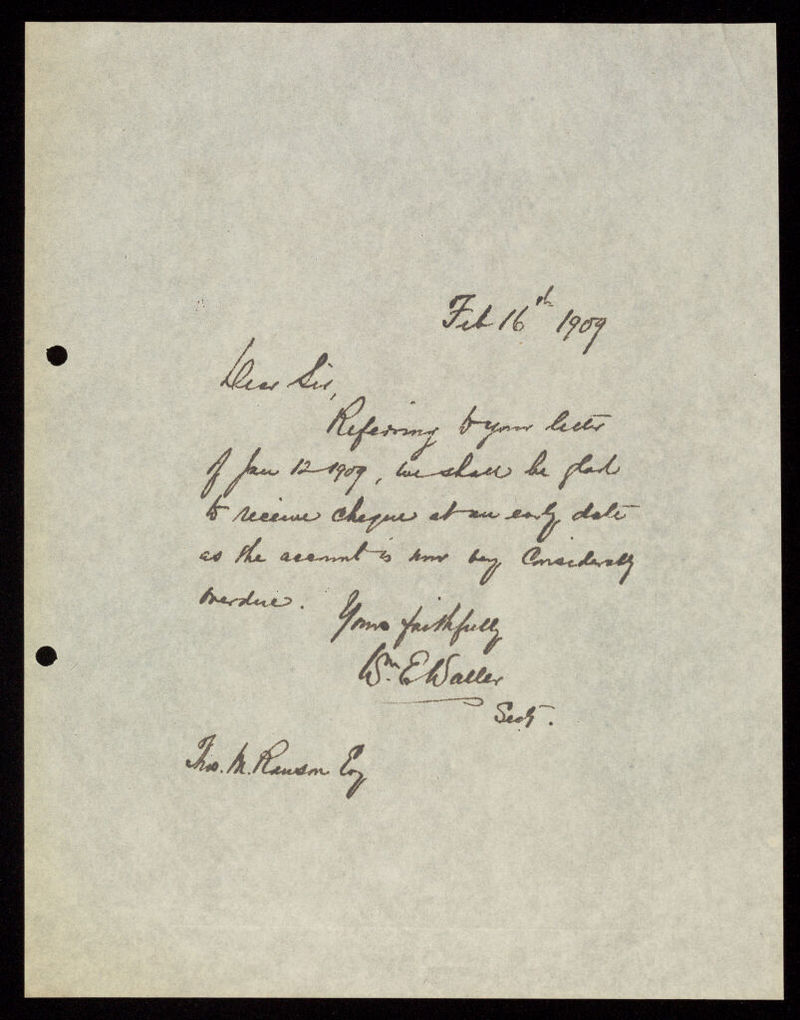 Feb 16th 1909
Dear Sir,
Referring to your letter
of Jan 12 1909, we shall be glad
to receive cheque at an early date
as the account is now very considerably
overdue.
Yours faithfully
Wm. E Waller
Secty.
Thos. M. Ranson Esq